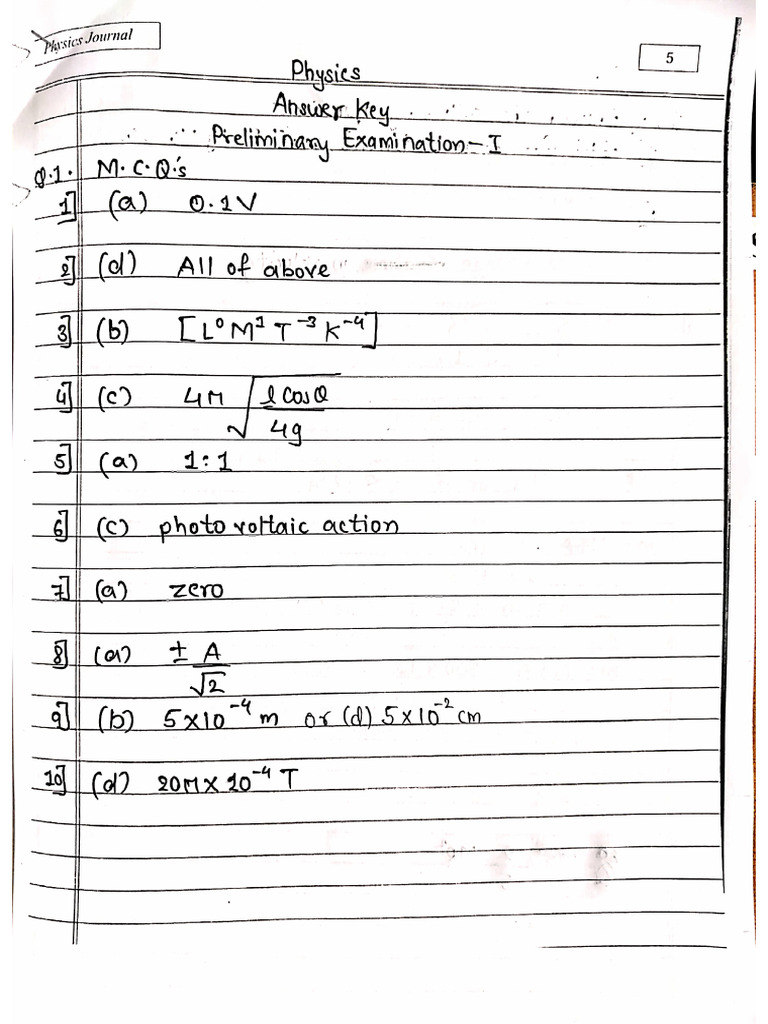 Physics Journal
5
Physics
Answer Key
Preliminary Examination - I
Q.1. M.C.Q's
1] (a) 0.1V
2] (d) All of above
3] (b) [L⁰ M¹ T⁻³ K⁻⁴]
4] (c) 4π √(l cosθ / 4g)
5] (a) 1:1
6] (c) photo voltaic action
7] (a) zero
8] (a) ± A/√2
9] (b) 5×10⁻⁴ m or (d) 5×10⁻² cm
10] (d) 20π × 10⁻⁴ T